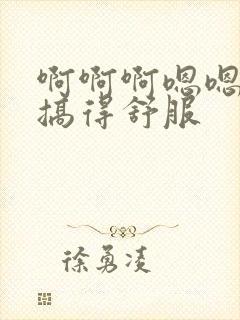 啊啊啊嗯嗯
搞得舒服
徐勇凌